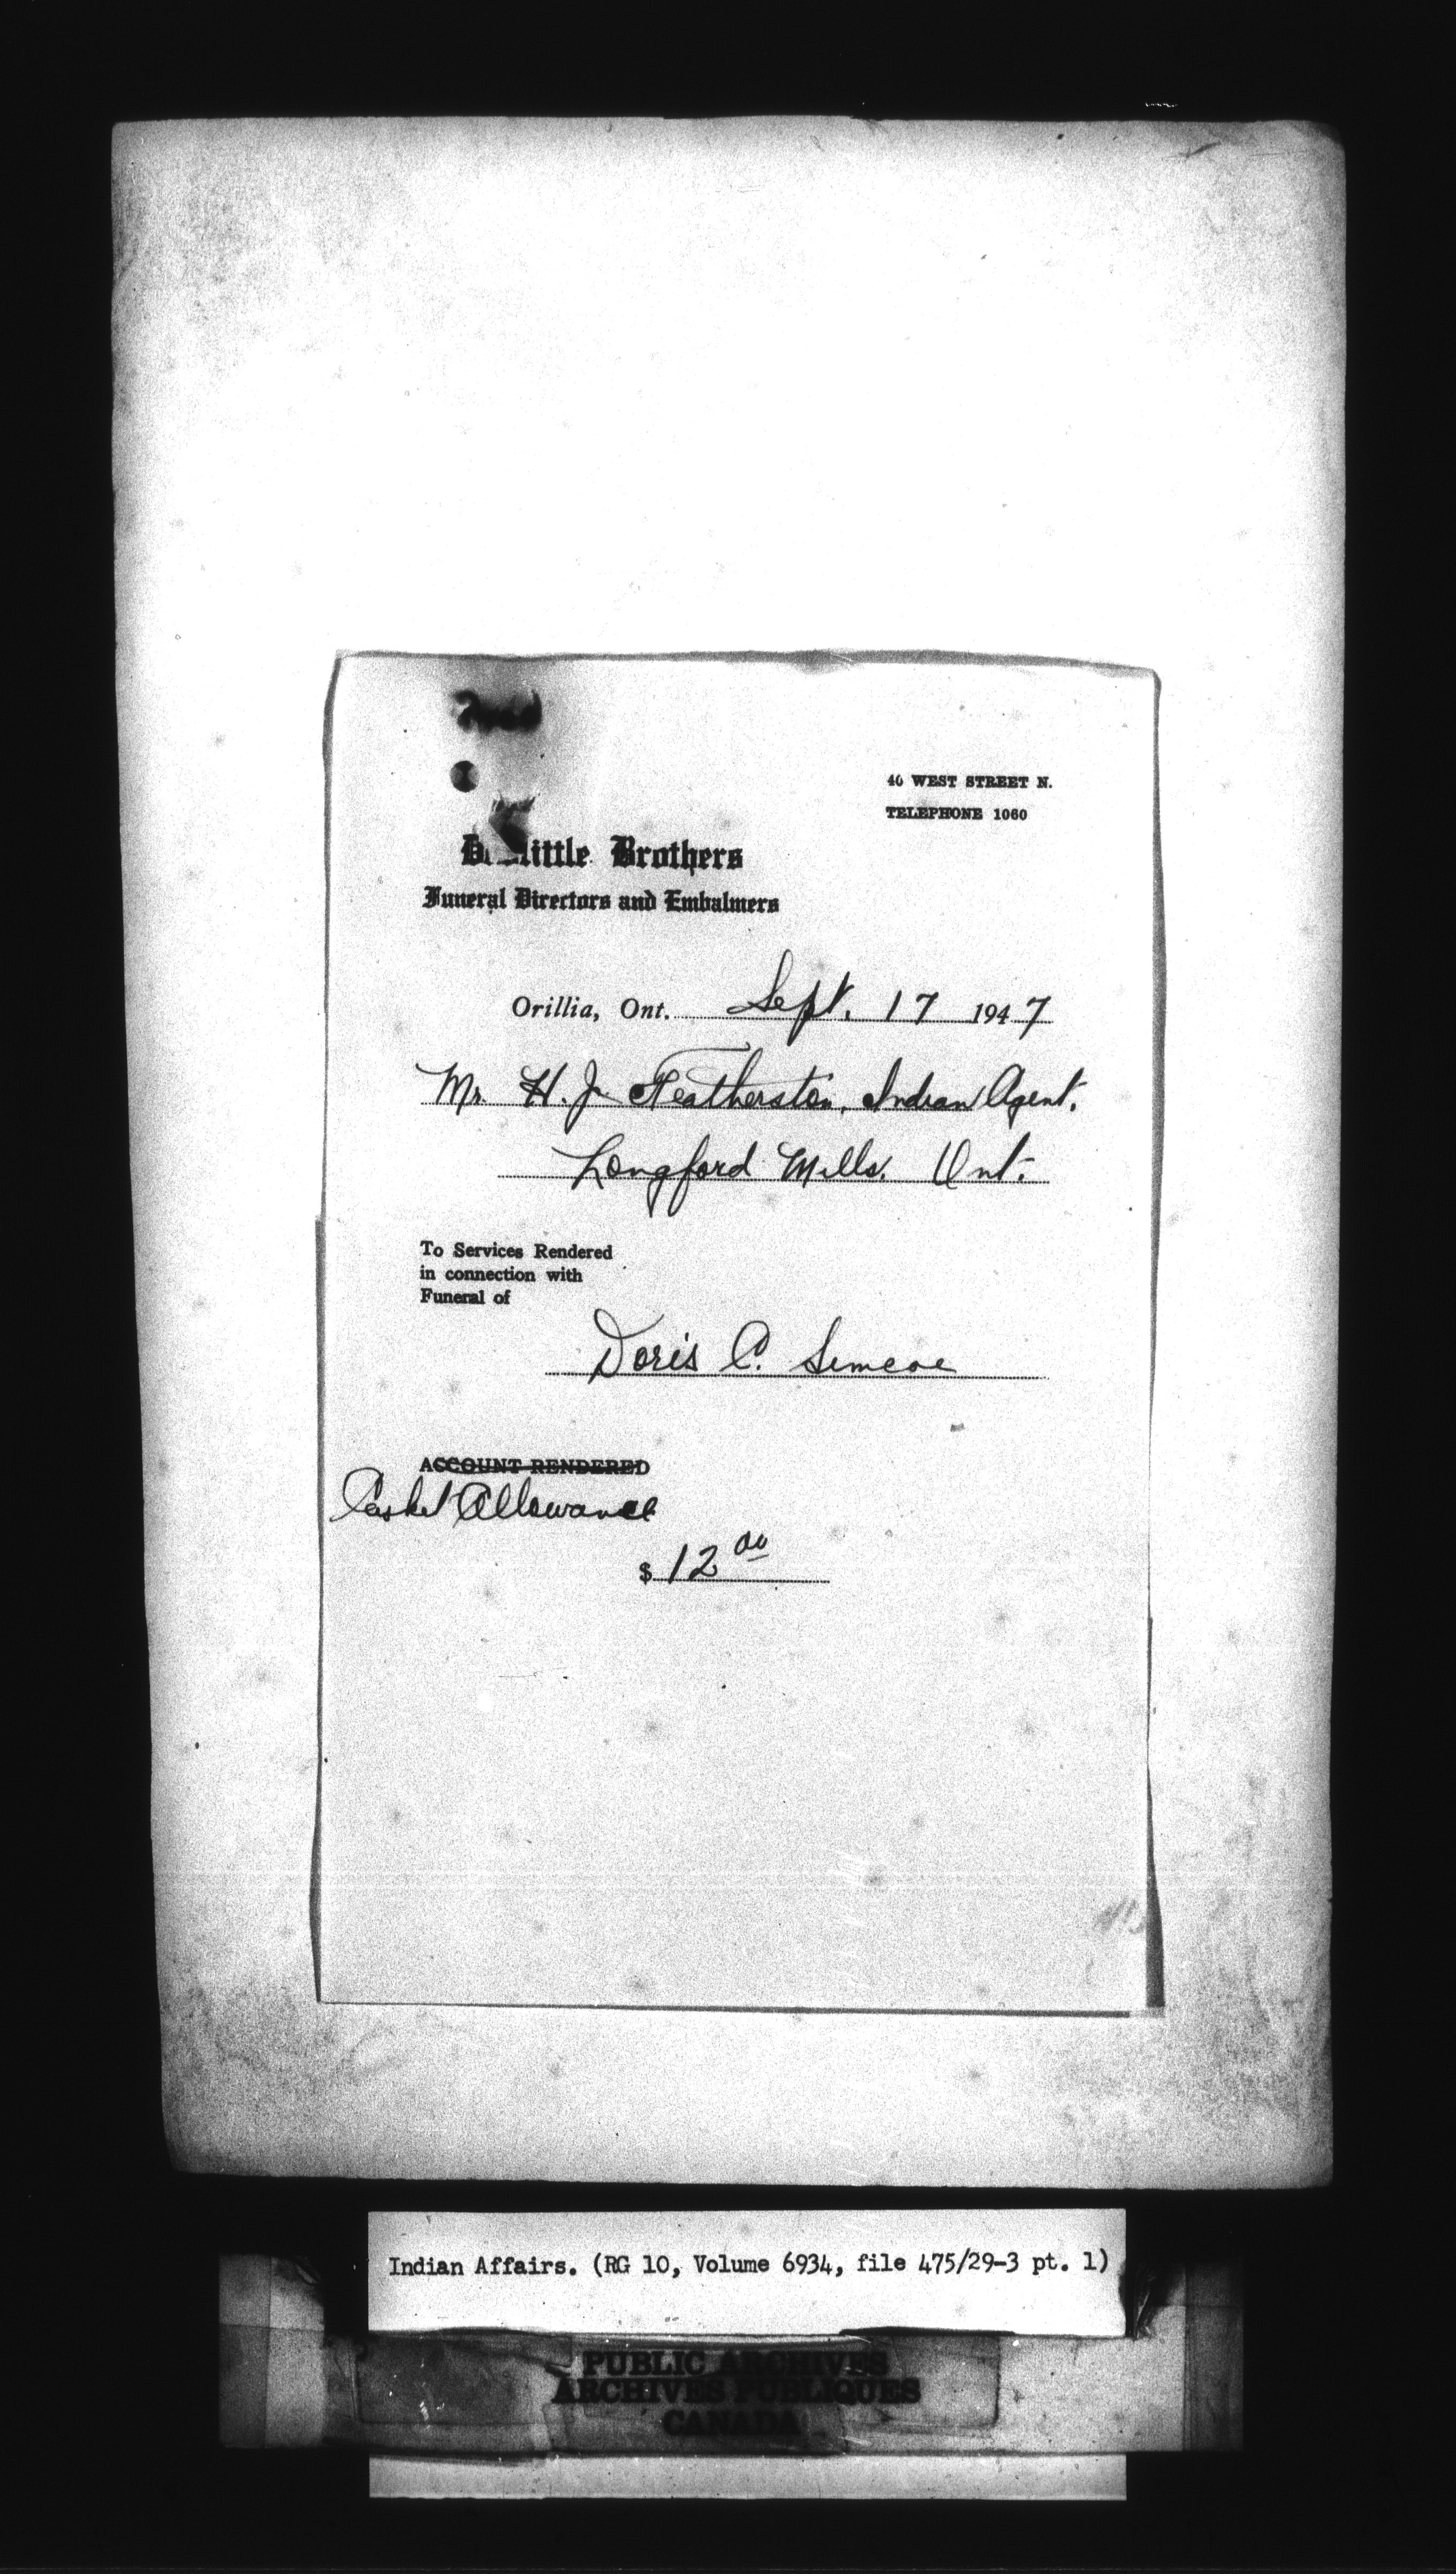 40 WEST STREET N.
TELEPHONE 1060
Brothers
Funeral Directors and Embalmers
Orillia, Ont. Sept. 17 1947
Mr. H. J. Featherston, Indian Agent,
Longford Mills, Ont.
To Services Rendered
in connection with
Funeral of
Doris C. Simcoe
ACCOUNT RENDERED
Casket Allowance
$ 12 00
Indian Affairs. (RG 10, Volume 6934, file 475/29-3 pt. 1)
PUBLIC ARCHIVES
ARCHIVES PUBLIQUES
CANADA